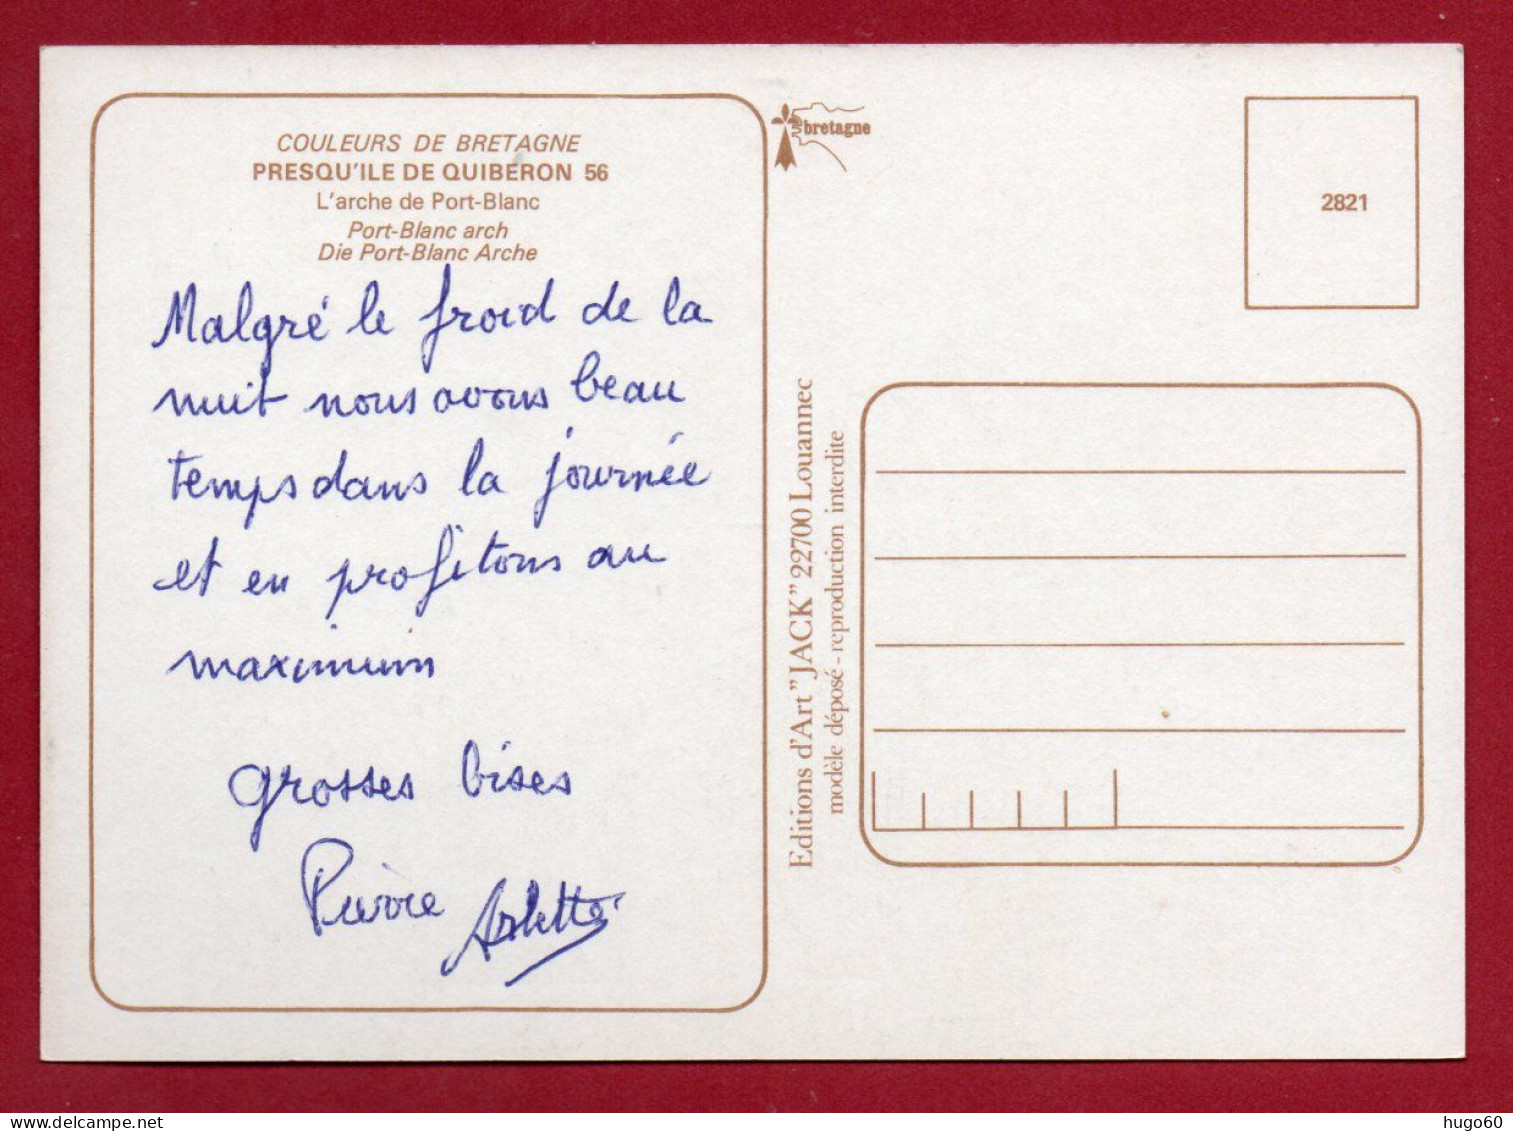 COULEURS DE BRETAGNE
PRESQU'ILE DE QUIBERON 56
L'arche de Port-Blanc
Port-Blanc arch
Die Port-Blanc Arche
Malgré le froid de la
nuit nous avons beau
temps dans la journée
et en profitons au
maximum
grosses bises
Pierre Arlette
bretagne
2821
Editions d'Art "JACK" 22700 Louannec
modèle déposé - reproduction interdite
delcampe.net
hugo60